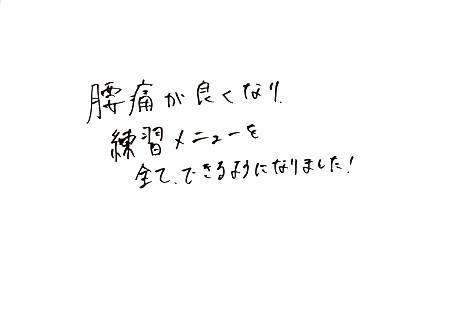 腰痛が良くなり、
練習メニューを
全て、できるようになりました!